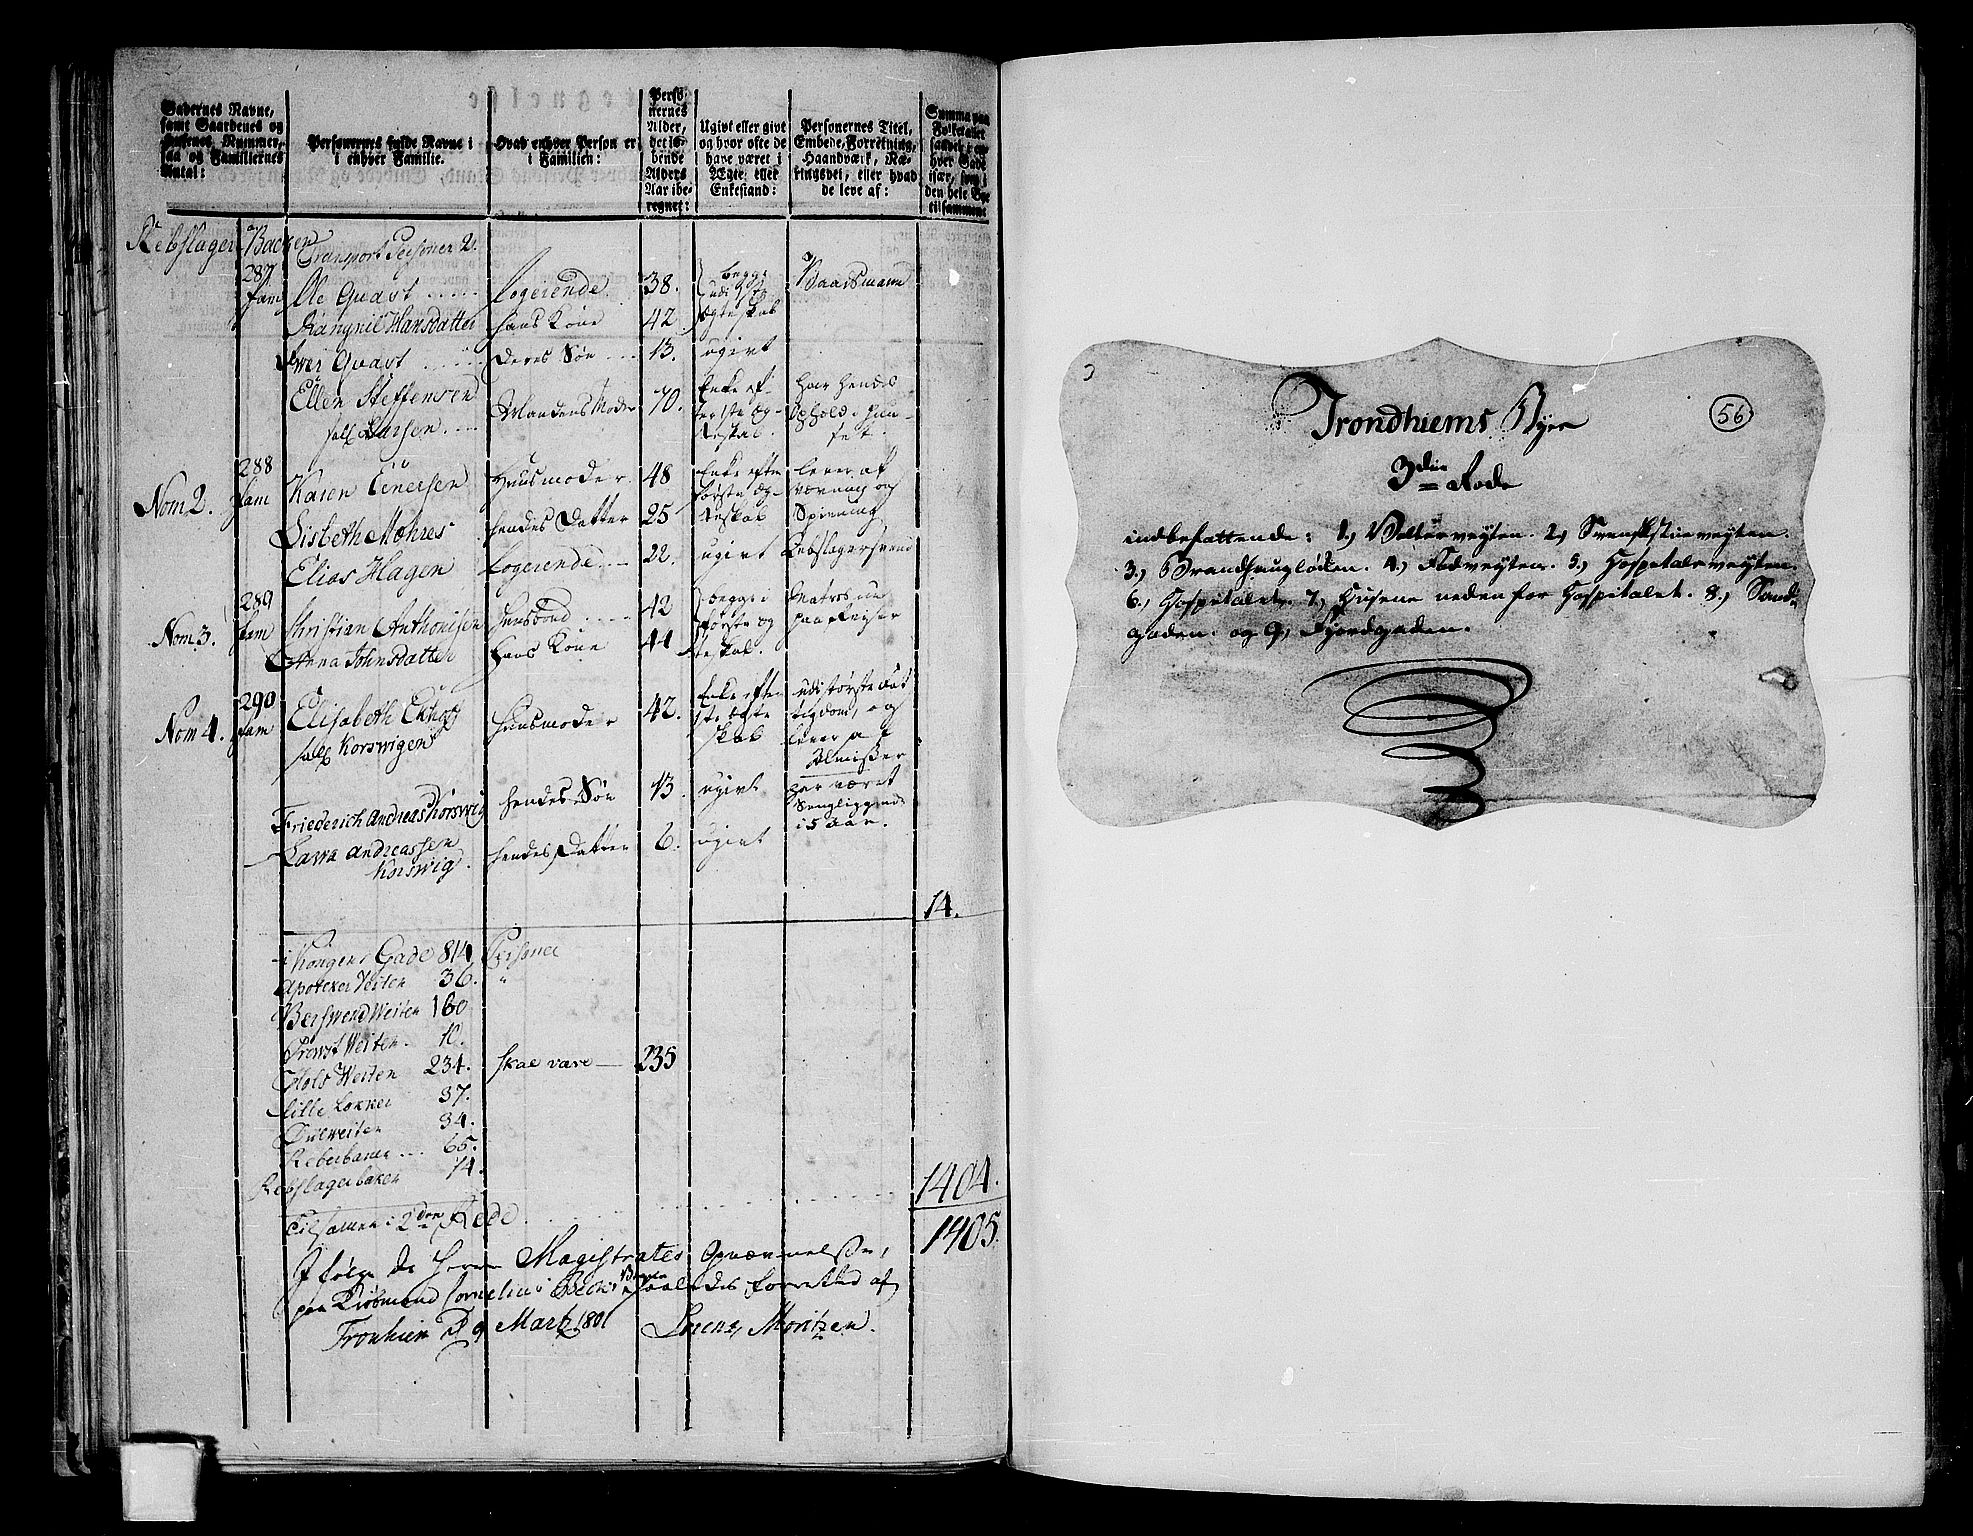 Gadernes Navne, samt Gaardenes og Husenes Nummer, saa og Familiernes Antal:
Personernes fulde Navne i enhver Familie.
Hvad enhver Person er i Familien:
Personernes Alder, det løbende Alders Aar iberegnet:
Ugivt eller givt og hvor ofte de have været i Ægte- eller Enkestand:
Personernes Titel, Embede, Forretning, Haandværk, Næringsvei, eller hvad de leve af:
Summa paa Folketallet
Rebslager Backen
Transport Personer 2.
287 fam Ole Quast Logerende 38. begge udi 1ste Ægteskab Baadsmand
Rangnil Hansdatter hans Kone 42
Iver Quast deres Søn 13. ugivt
Ellen Steffensen Mandens Moder 70. Enke efter 1ste Ægteskab har hendes Ophold i
sall Larsen
Nom 2. 288 fam Karen Einersen Huusmoder 48 Enke efter første Ægteskab lever af Vævning og Spinning
Lisbeth Mohres hendes Datter 25
Elias Hagen Logerende 22. ugivt Rebslagersvend
Nom 3. 289 fam Christian Anthonisen Huusbond 42 begge i første Ægteskab. Matros paa Reiser
Anna Johnsdatter hans Kone 44
Nom 4. 290 fam Elisabeth Huusmoder 42. Enke efter 1ste Ægteskab udi største Fattigdom, og lever af Almisser
sall Korswigen
Friederich Andreas Korswig hendes Søn 13. ugivt har været Sengliggende i 5 Aar.
Andreassen Korswig hendes Datter 6. ugivt
14.
i Kongens Gade 814 Personer
Apoteker Veiten 36. "
Berswend Weiten 160
Prowst Weiten 10.
Hols Weiten 234. skal være 235
Lille Løkken 37.
Dûeweiten 34.
Reberbanen 65.
Rebslagerbaken 14.
1404.
Tilsamen i 2den Rode
1405.
Ifølge de Herrer Magistrates Opnævnelse,
paa Kiøbmand Cornelius Beckers Vegne saaledes forrettet af
Tronhiem D 9 Martz 1801 Lorenz Moritzen.
3
56
Trondhiems Byes
3die Rode
indbefattende: 1, Volterveyten. 2, Svenskstueveyten.
3, Brandhaugløkken. 4, Fødveyten. 5, Hospitalsveyten.
6, Hospitalet. 7, Husene nedenfor Hospitalet. 8, Sand-
gaden. og 9, Fjordgaden.